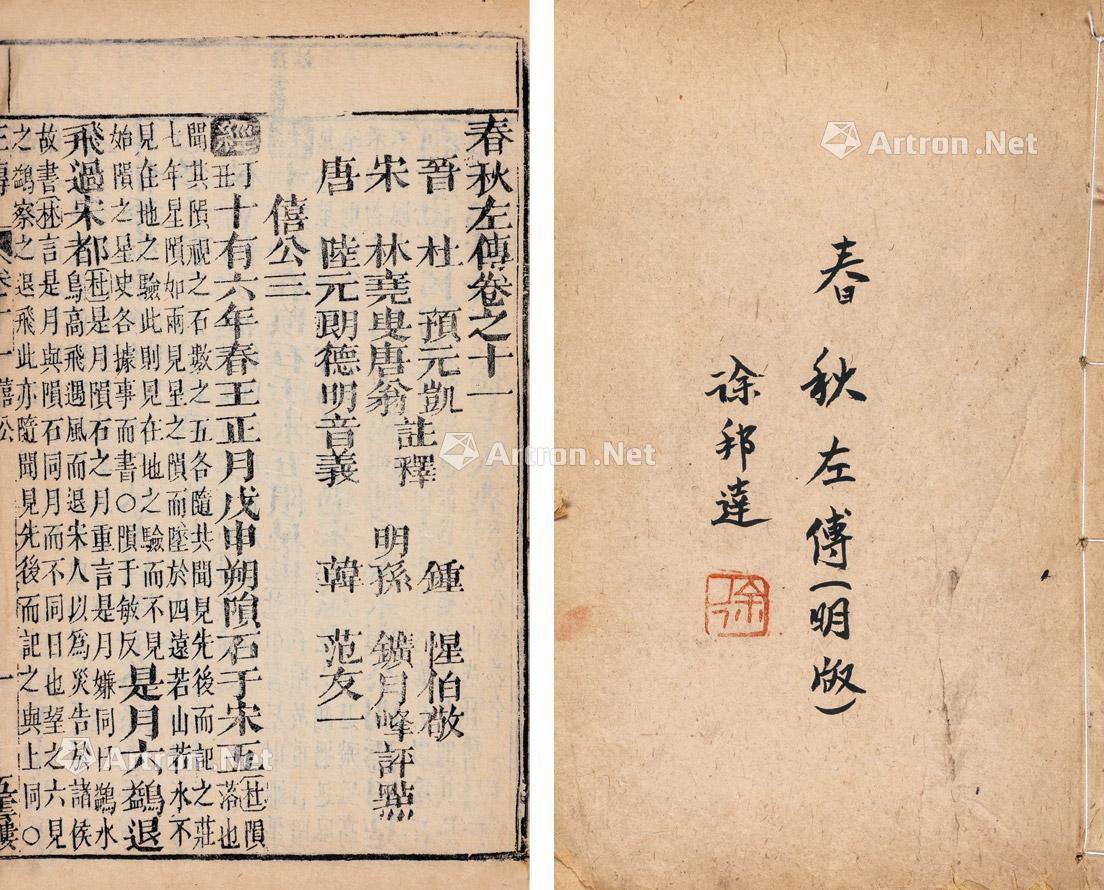 春秋左傳卷之十一
晉 杜 預元凱
宋 林堯叟唐翁 註釋
唐 陸元朗德明音義
鍾 惺伯敬
明 孫 鑛月峰 評點
韓 范友一
僖公三
經 丁丑 十有六年春王正月戊申朔隕石于宋五 杜隕落也
聞其隕視之石數之五各隨其聞見先後而記之莊
七年星隕如雨見星之隕而墜於四遠若山若水不
見在地之驗此則見在地之驗而不見
始隕之星史各據事而書○隕于敏反 是月六鷁退
飛過宋都 杜是月隕石之月重言是月嫌同日鷁水
鳥高飛遇風而退宋人以為災告於諸侯
故書林言是月與隕石同月而不同日也望之六見
之鷁察之退飛此亦隨聞見先後而記之與上同○
左傳 卷十一 僖公 一
春秋左傅(明版)
徐邦達
徐
Artron.Net
Artron.Net
Artron.Net
Artron.Net